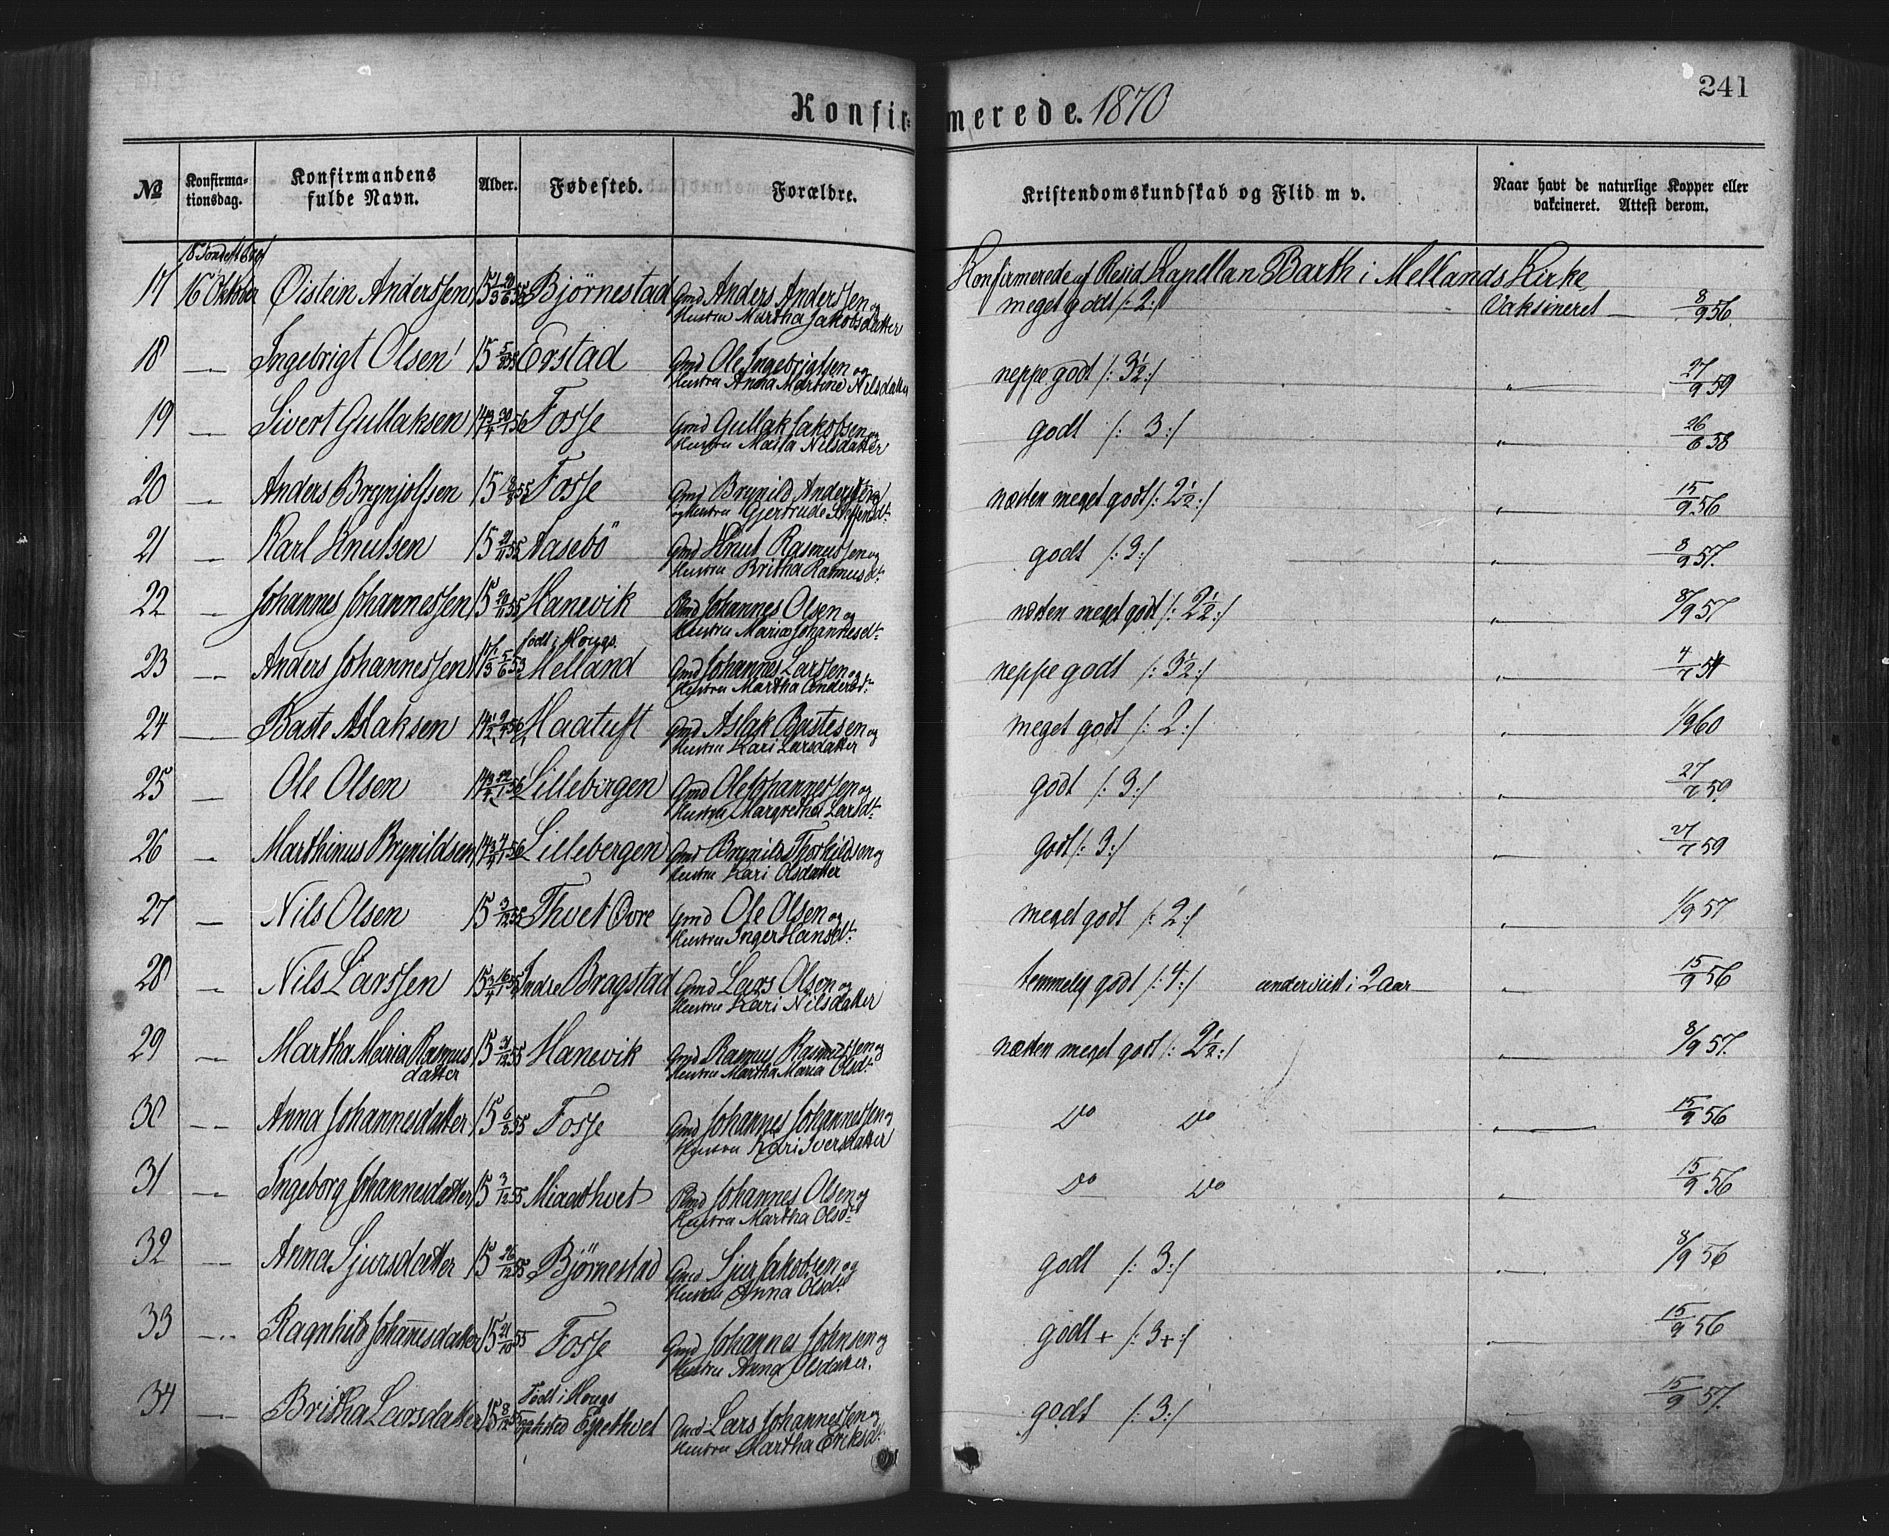 241
Konfirmerede. 1870
№ Konfirmationsdag. Konfirmandens fulde Navn. Alder. Fødested. Forældre. Kristendomskundskab og Flid m v. Naar havt de naturlige Kopper eller vakcineret. Attest derom.
Konfirmerede af Resid. Kapellan Barth i Mellands Kirke
17 16 Oktober Øistein Anderssen 15 Bjørnestad Gmd Anders Anderssen og
Hustru Martha Jakobsdatter meget godt /: 2 :/ Vaksineret 8/9 56.
18 Ingebrigt Olsen 15 Erstad Gmd Ole Ingebrigtsen og
Hustru Anna Martine Nilsdatter neppe godt /: 3½ :/ " 27/9 59
19 Sivert Gullaksen Fosse Gmd Gullak Jakobsen og
Hustru Nilsdatter godt /: 3 :/ " 26/6 58
20 Anders Brynjolfsen 15 Fosse Gmd Brynild Anderssen
og Hustru Gjertrude næsten meget godt /: 2½ :/ " 15/9 56
21 Karl Knutsen 15 Aasebö Gmd Knut Rasmussen og
Hustru Britha Rasmusdt. godt /: 3 :/ " 8/9 57.
22 Johannes Johannessen 15 Hanevik Johannes Olsen og
Hustru Maria Johannesdt. næsten meget godt /: 2½ :/ " 8/9 57
23 Anders Johannessen født i Hougs.
Melland Gmd Johannes Larssen og
Hustru Martha Andersdt. neppe godt /: 3½ :/ "
24 Baste Aslaksen Haatuft Gmd Aslak Bastesen og
Hustru Kari Larsdatter meget godt /: 2 :/ " 1/9 60
25 Ole Olsen Lillebergen Gmd Ole Johannessen og
Hustru Margretha Larsdt. godt /: 3 :/ " 27/7 59.
26 Marthinus Brynildsen Lillebergen Gmd Brynild Thorkildsen og
Hustru Kari Olsdatter godt /: 3 :/ " 27/7 59
27 Nils Olsen 15 3/12 55 Thvet Øvre Gmd Ole Olsen og
Hustru Inger Hansdt. meget godt /: 2 :/ " 1/9 57
28 Nils Larssen Indre Bragstad Gmd Lars Olsen og
Hustru Kari Nilsdatter temmelig godt /: 4 :/ underviist i 2 Aar " 15/9 56
29 Martha Maria Rasmus
datter 15 Hanevik Gmd Rasmus Rasmussen og
Hustru Martha Maria Olsdt. næsten meget godt /: 2½ :/ " 8/9 57.
30 Anna Johannesdatter 15 Fosse Gmd Johannes Johannessen og
Hustru Kari Iversdatter Do Do " 15/9 56
31 Ingeborg Johannesdatter 15 3/12 55 Johannes Olsen og
Hustru Martha Olsdt. Do Do " 15/9 56
32 Anna Sjursdatter 15 26/12 55 Bjørnestad Gmd Sjur Jakobsen og
Hustru Anna Olsdt. godt /: 3 :/ " 8/9 56
33 Ragnhild Johannesdatter 15 21/10 55 Fosse Gmd Johannes Johnsen og
Hustru Anna Olsdatter. godt + /: 3+ :/ " 15/9 56
34 Britha Larsdatter 15 Født i Hougs
Gmd Lars Johannessen og
Hustru Martha Eriksdt. godt /: 3 :/ " 15/9 57.